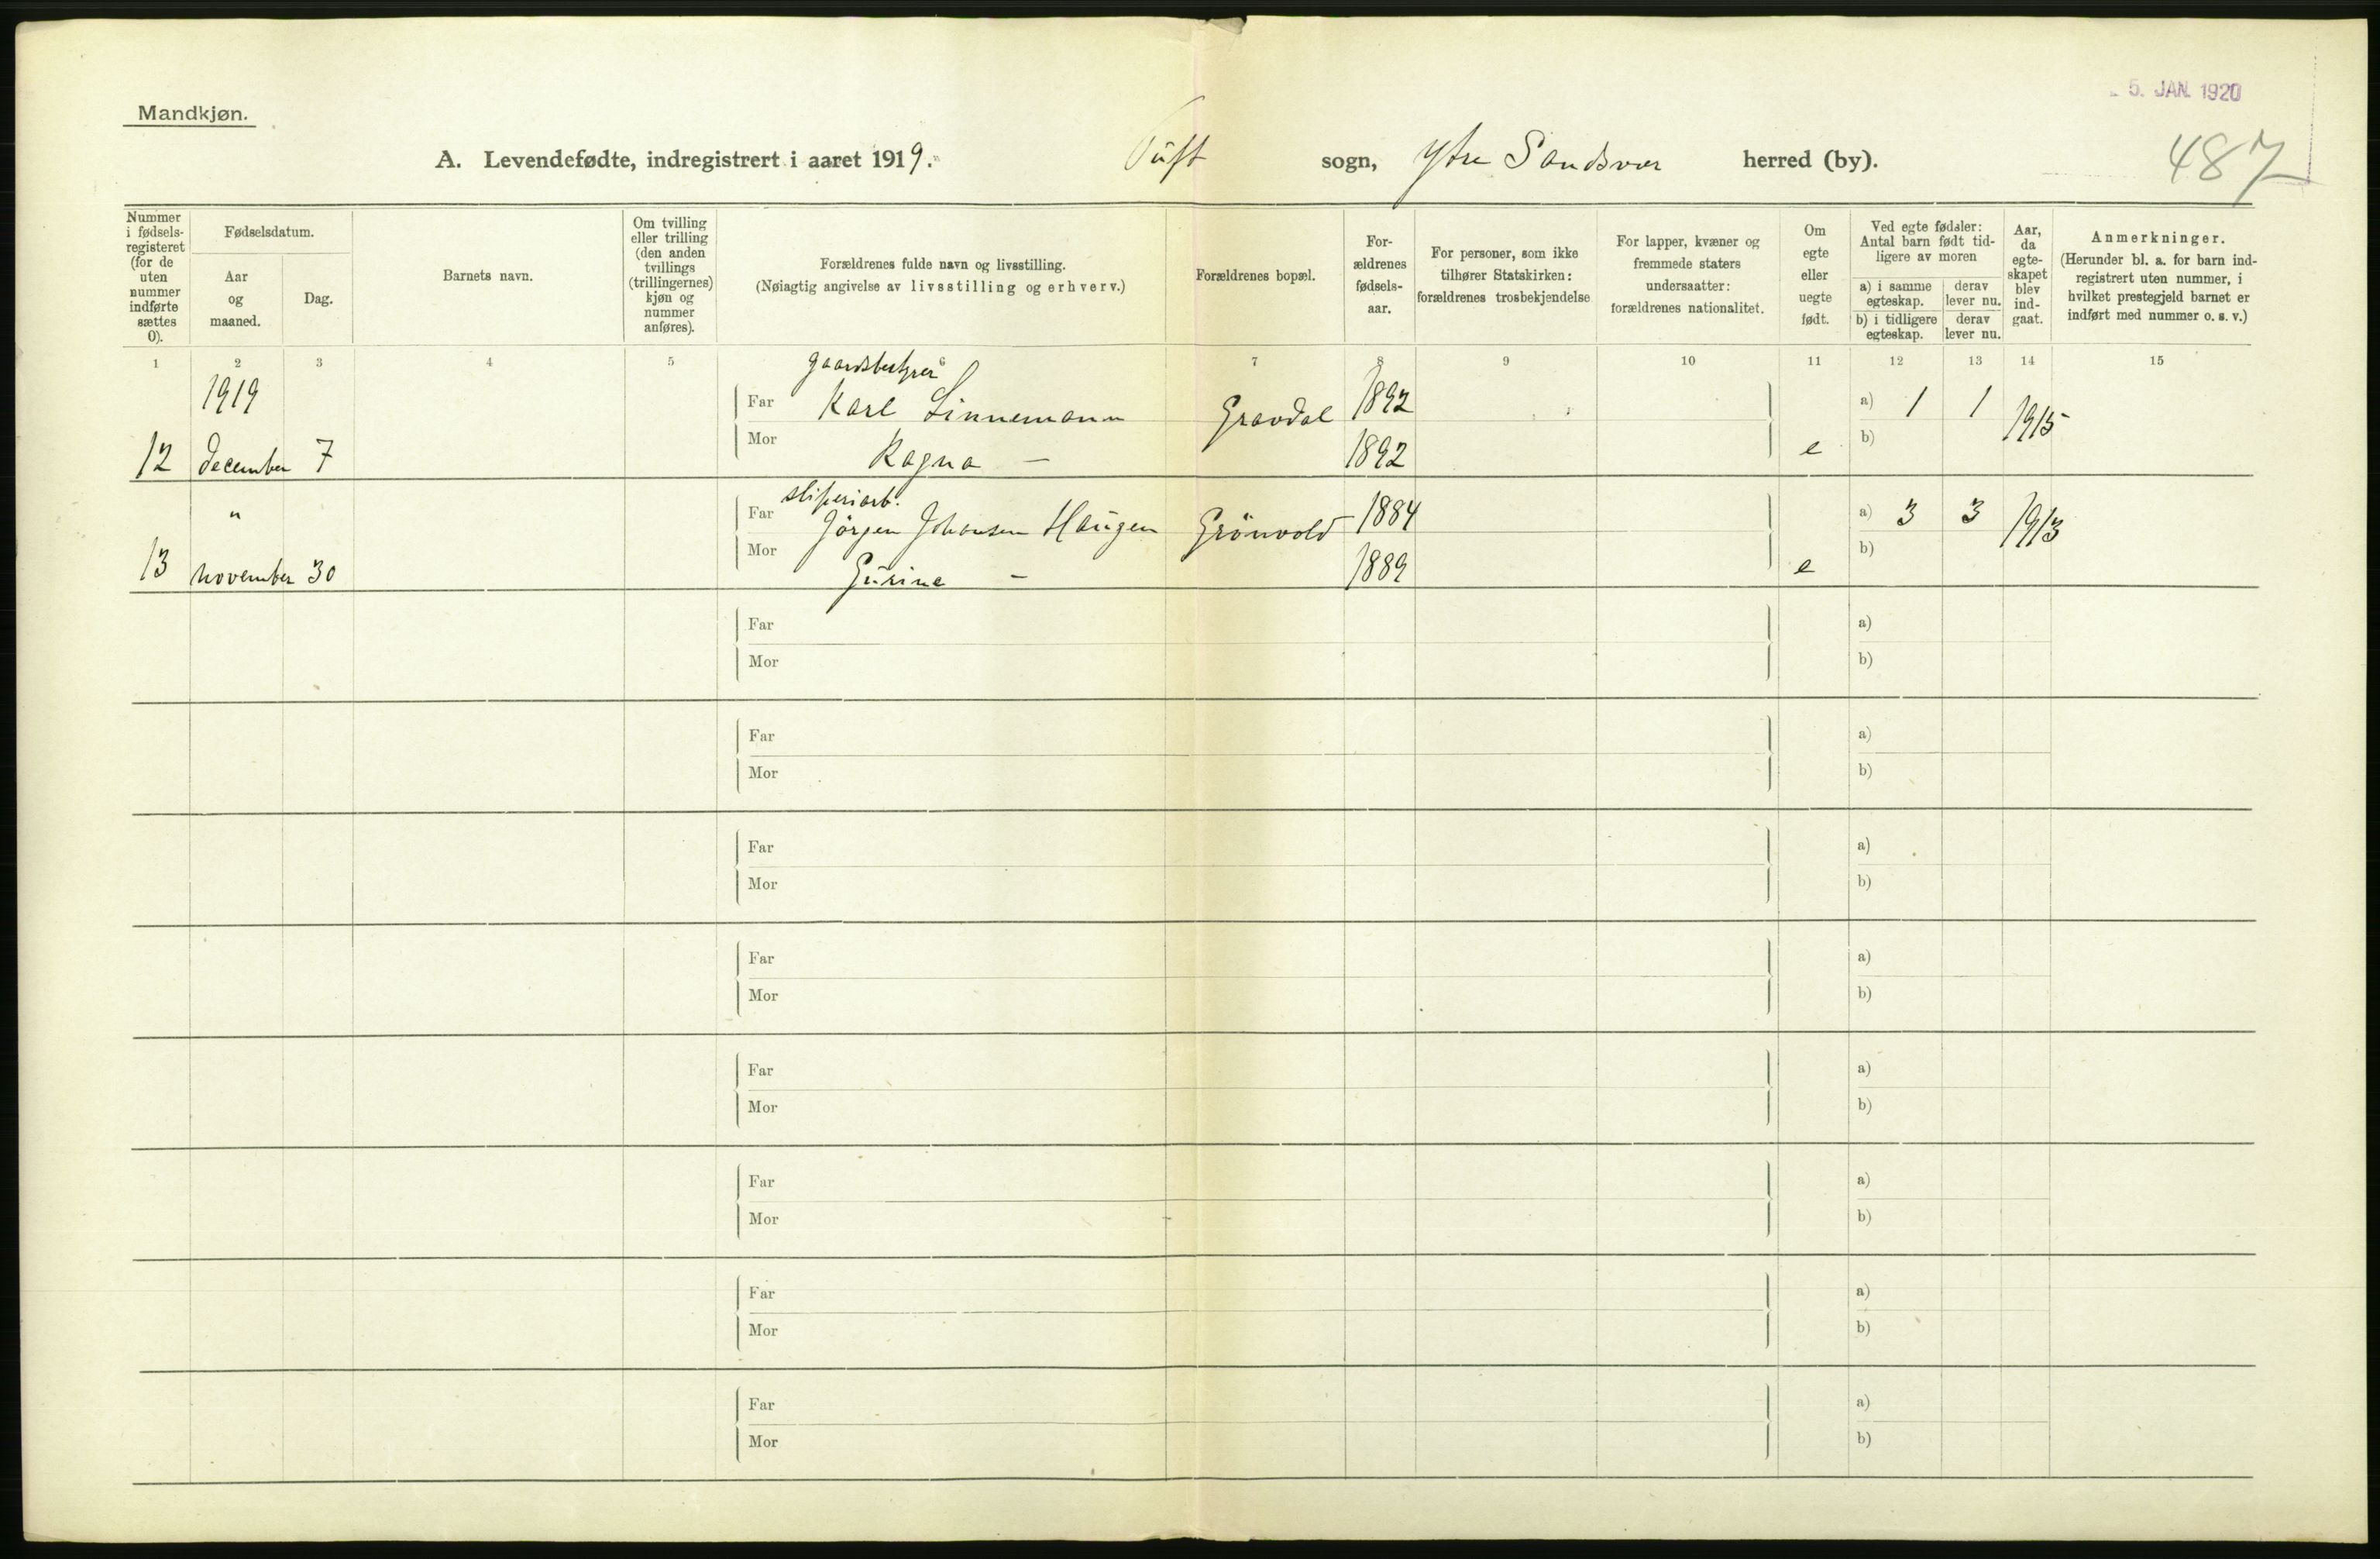 5. JAN. 1920
Mandkjøn.
487
A. Levendefødte, indregistrert i aaret 1919. Tuft sogn, Ytre Sandsvær herred (by).
Nummer i fødselsregisteret (for de uten nummer indførte sættes 0).
Fødselsdatum.
Aar og maaned.
Dag.
Barnets navn.
Om tvilling eller trilling (den anden tvillings (trillingernes) kjøn og nummer anføres).
Forældrenes fulde navn og livsstilling.
(Nøiagtig angivelse av livsstilling og erhverv.)
Forældrenes bopæl.
For-ældrenes fødsels-aar.
For personer, som ikke tilhører Statskirken: forældrenes trosbekjendelse
For lapper, kvæner og fremmede staters undersaatter: forældrenes nationalitet.
Om egte eller uegte født.
Ved egte fødsler: Antal barn født tid-ligere av moren
a) i samme egteskap.
derav lever nu.
b) i tidligere egteskap.
derav lever nu.
Aar, da egte-skapet blev ind-gaat.
Anmerkninger.
(Herunder bl. a. for barn ind-registrert uten nummer, i hvilket prestegjeld barnet er indført med nummer o. s. v.)
1 2 3 4 5 6 7 8 9 10 11 12 13 14 15
gaardsbestyrer
1919 Far Karl Linnemann Gravdal 1892 a) 1 1 1915
12 december 7 Mor Ragna — 1892 e b)
sliperiarb.
" Far Jörgen Johansen Haugen Grönvold 1884 a) 3 3 1913
13 november 30 Mor Gurine — 1889 e b)
Far a)
Mor b)
Far a)
Mor b)
Far a)
Mor b)
Far a)
Mor b)
Far a)
Mor b)
Far a)
Mor b)
Far a)
Mor b)
Far a)
Mor b)